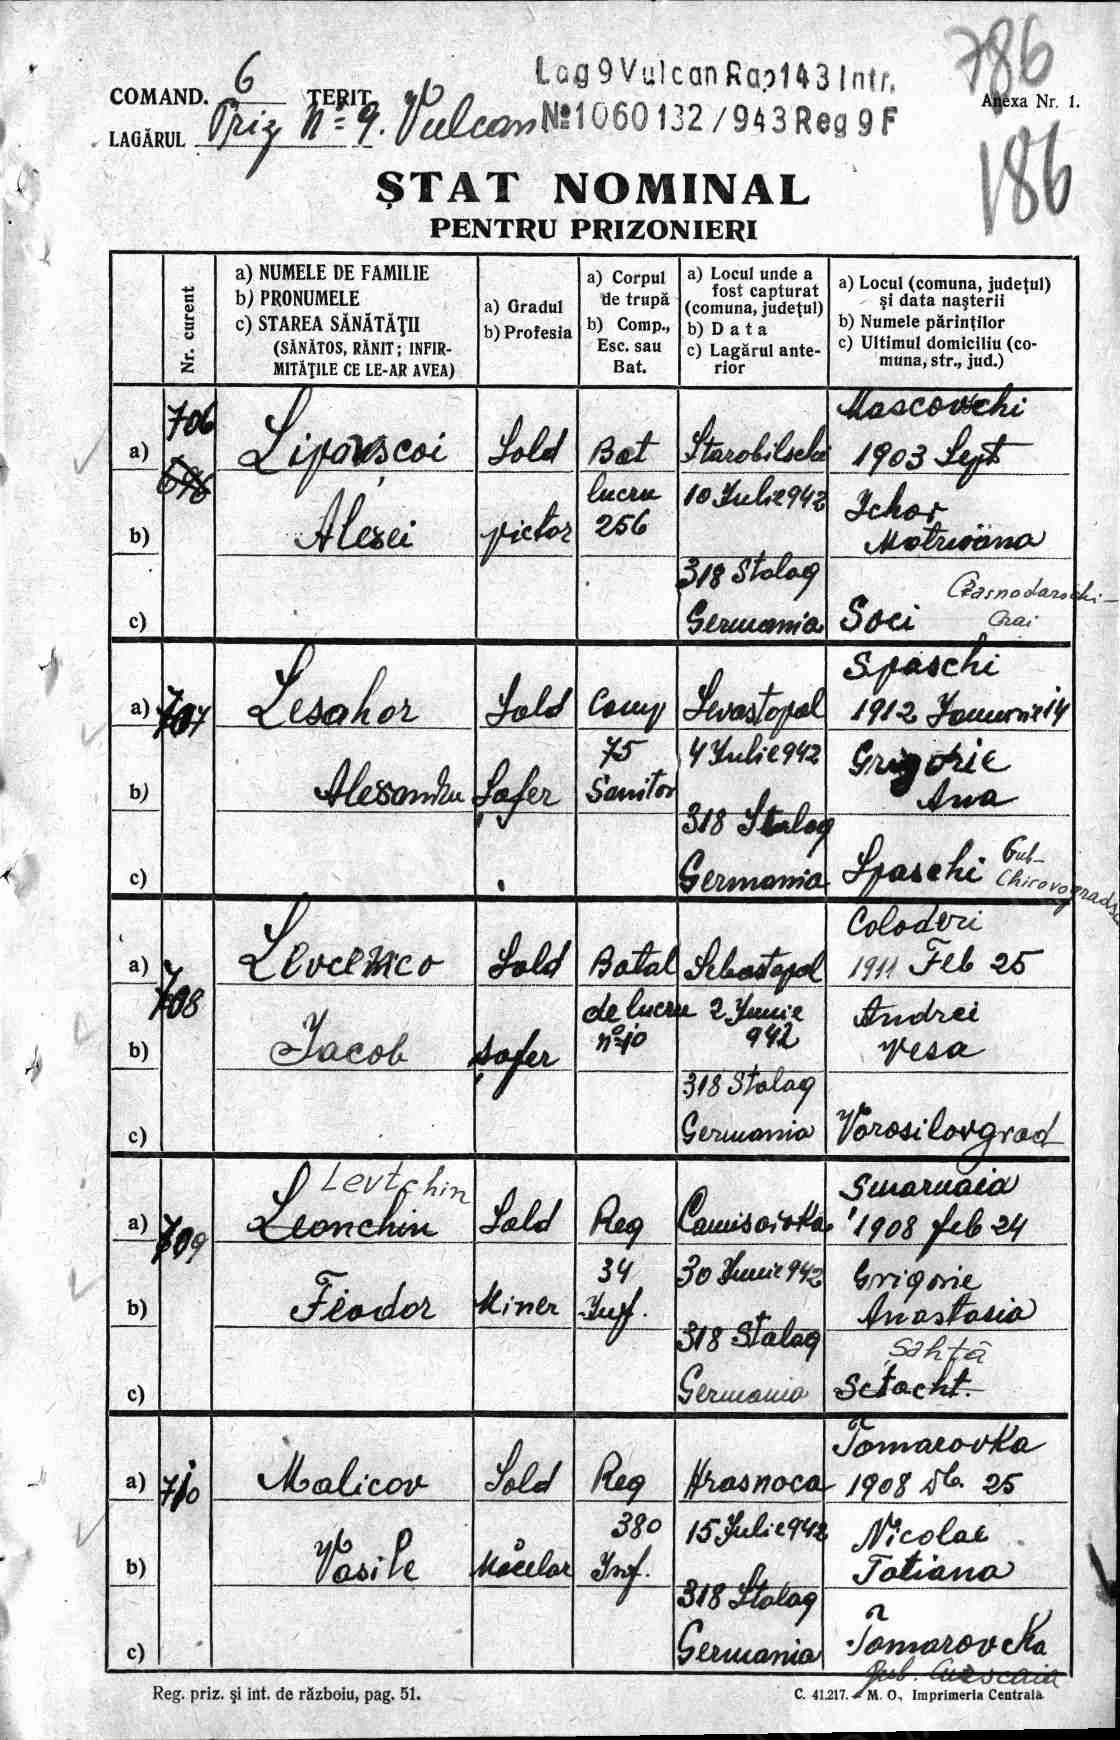 786
Lag 9 Vulcan Rap 143 Intr.
№ 1060132/943 Reg 9 F
COMAND. 6 TERIT.
Anexa Nr. 1.
LAGĂRUL Priz Nº 9. Vulcan
186
ȘTAT NOMINAL
PENTRU PRIZONIERI
Nr. curent
a) NUMELE DE FAMILIE
b) PRONUMELE
c) STAREA SĂNĂTĂŢII
(SĂNĂTOS, RĂNIT; INFIR-
MITĂŢILE CE LE-AR AVEA)
a) Gradul
b) Profesia
a) Corpul
de trupă
b) Comp.,
Esc. sau
Bat.
a) Locul unde a
fost capturat
(comuna, judeţul)
b) Data
c) Lagărul ante-
rior
a) Locul (comuna, judeţul)
şi data naşterii
b) Numele părinţilor
c) Ultimul domiciliu (co-
muna, str., jud.)
706
696
a) Lipovscoi
b) Alexei
c)
Sold
pictor
Bat
lucru
256
Starobilschi
10 Iulie 942
318 Stalag
Germania
Mascovschi
1903 Sept
Ichor
Motrioana
Crasnodarschi-
Crai
Soci
707
a) Lesahor
b) Alexandru
c)
Sold
Șofer
Comp
75
Sanitar
Sevastopol
4 Iulie 942
318 Stalag
Germania
Spaschi
1912 Ianuarie 14
Grigorie
Ana
Spaschi Gub-
Chirovograds
708
a) Levcenco
b) Iacob
c)
Sold
șofer
Batal
de lucru
nº 10
Sebastopol
2 Iunie
942
318 Stalag
Germania
Coloderi
1911 Feb 25
Andrei
Vesa
Vorosilovgrad
709
Levtchin
a) Leonchin
b) Feodor
c)
Sold
Miner
Reg
34
Inf.
Camisoivka
30 Iunie 942
318 Stalag
Germania
Smarnaia
1908 feb 24
Grigorie
Anastasia
Sahtă
Sctacht.
710
a) Malicov
b) Vasile
c)
Sold
Măcelar
Reg
380
Inf.
Hrasnoca
15 Iulie 942
318 Stalag
Germania
Tomarovka
1908 Db. 25
Nicolae
Tatiana
Tomarovcka
Gub. Curscaia
Reg. priz. şi int. de războiu, pag. 51.
C. 41.217. – M. O., Imprimeria Centrala